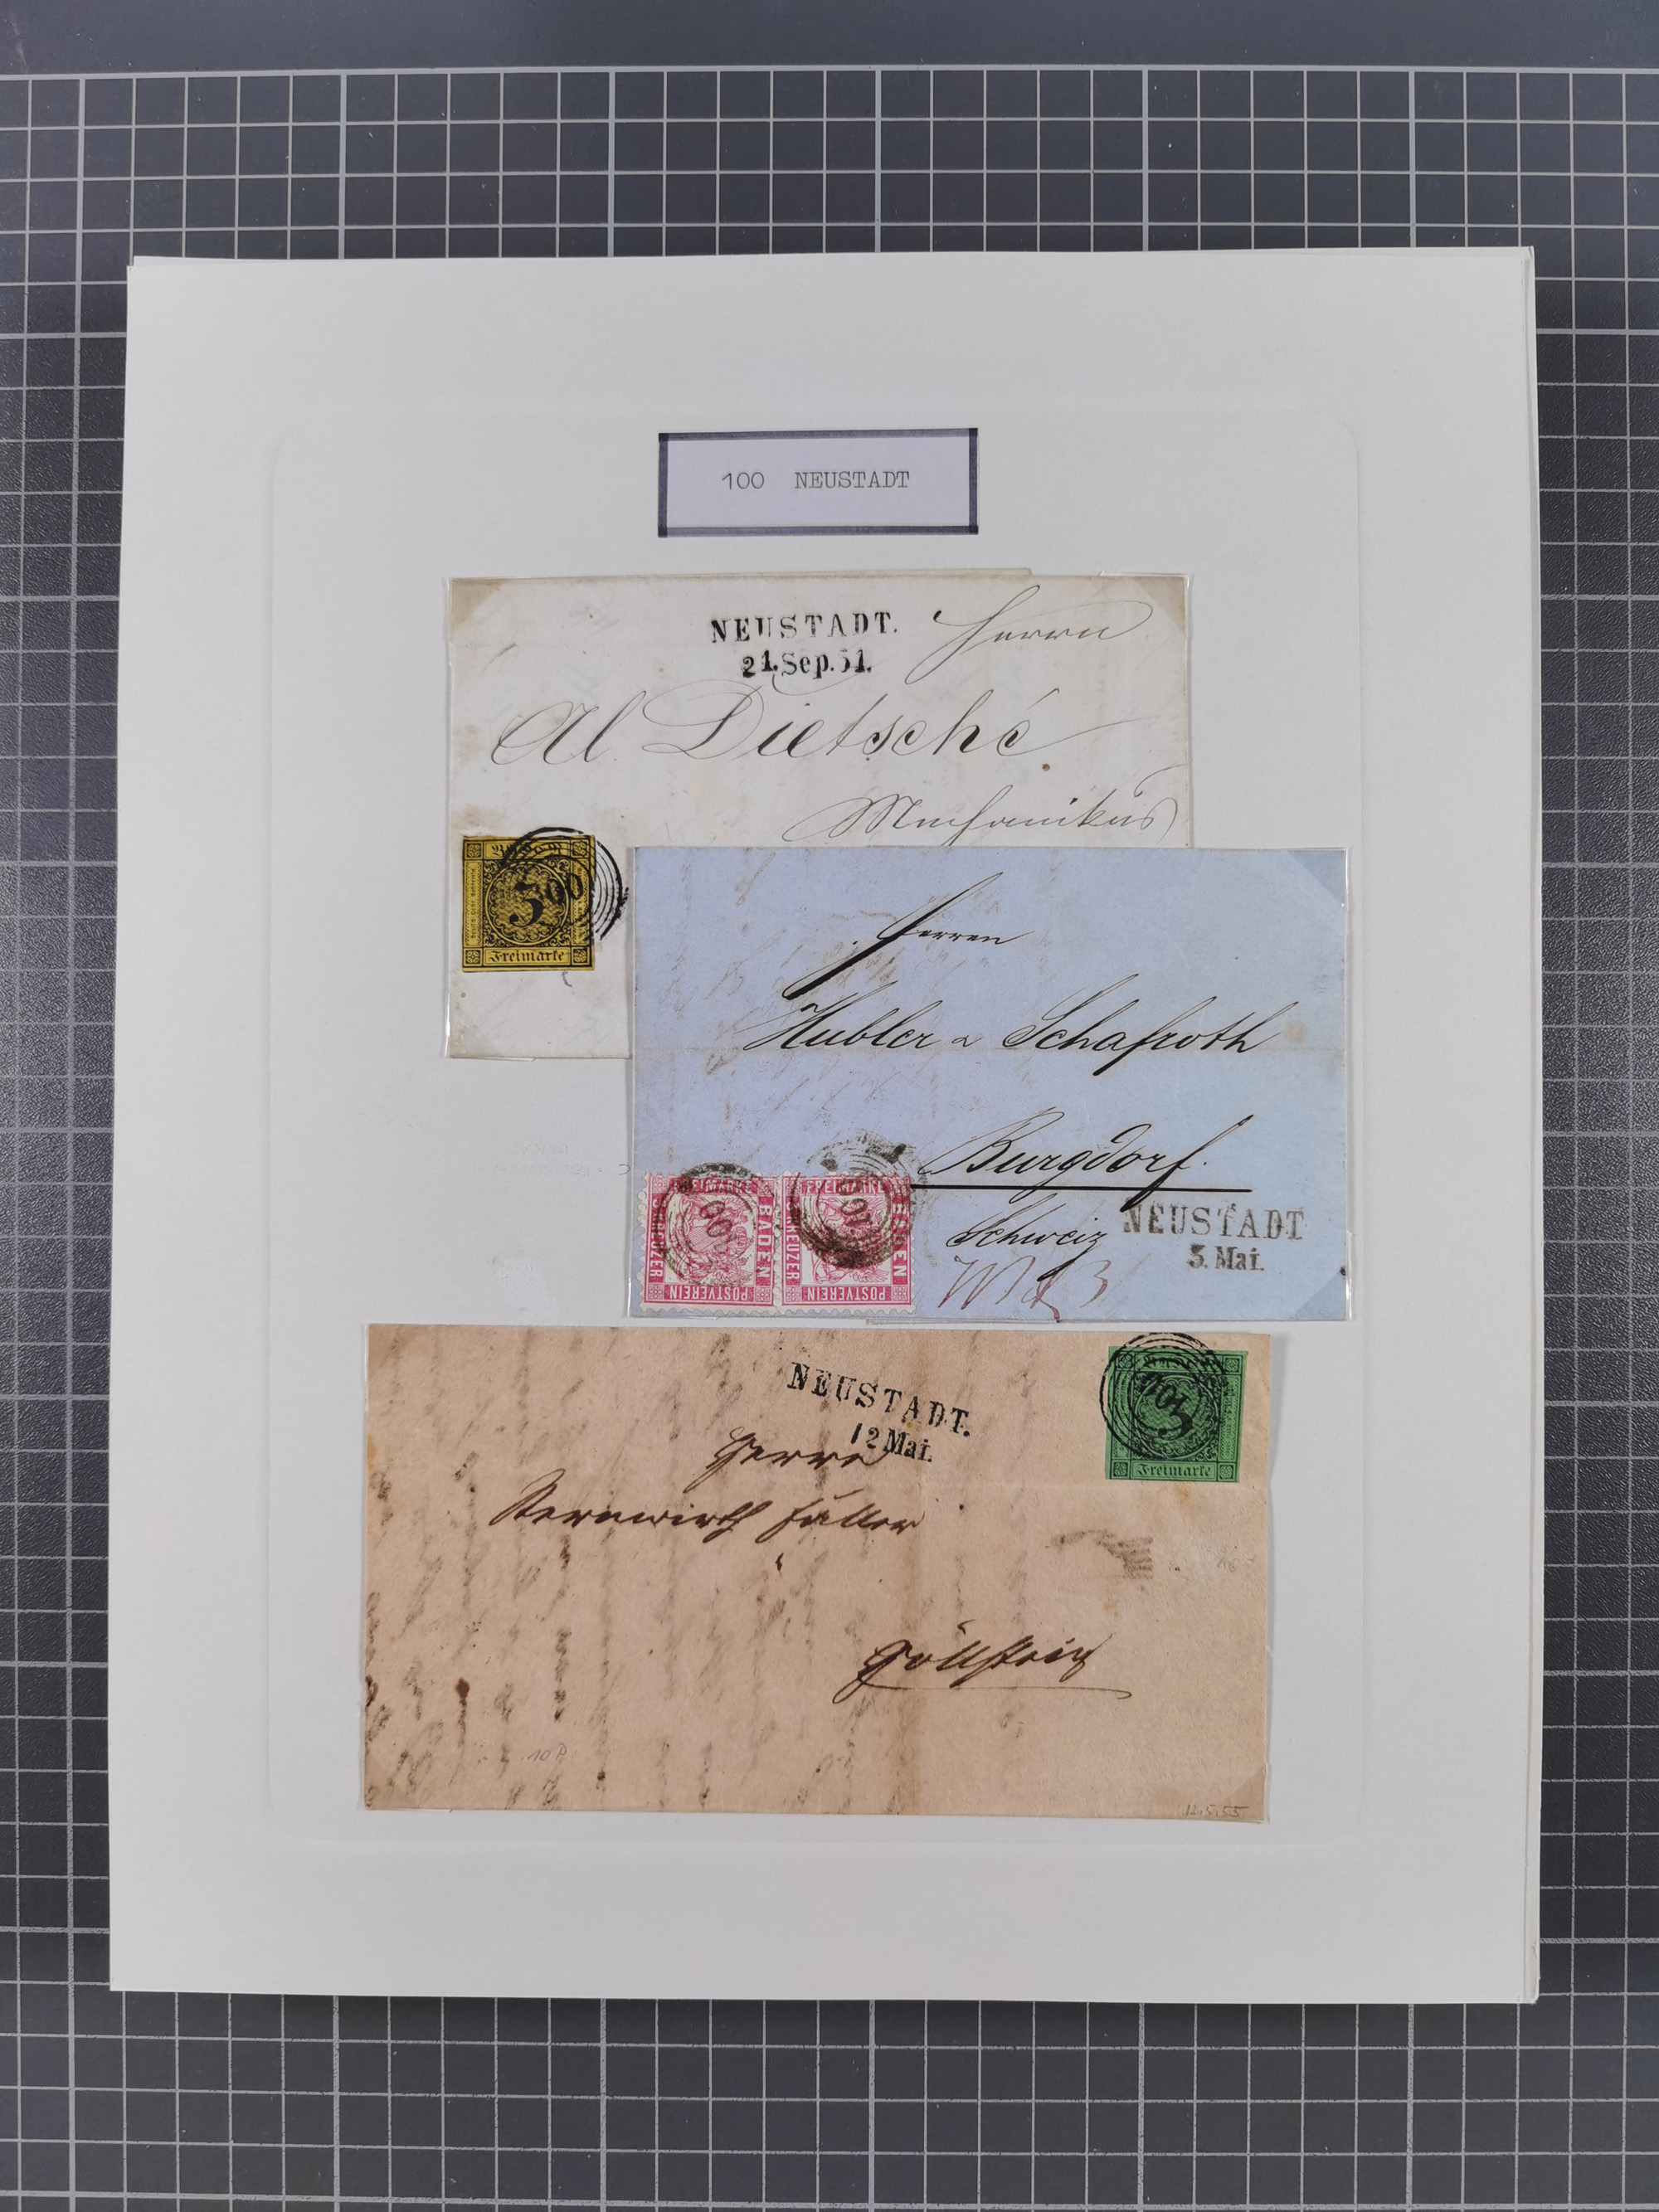 100 NEUSTADT
NEUSTADT.
21.Sep.51.
Herrn
Al Dietsché
Mechanikus
3
Freimarke
Herren
Hubler & Schafroth
Burgdorf.
Schweiz
NEUSTADT
3. Mai.
FREIMARKE
BADEN
POSTVEREIN
KREUZER
100
FREIMARKE
BADEN
POSTVEREIN
KREUZER
100
NEUSTADT.
12 Mai.
Herrn
Sternwirth Faller
Freimarke
100
12.5.55